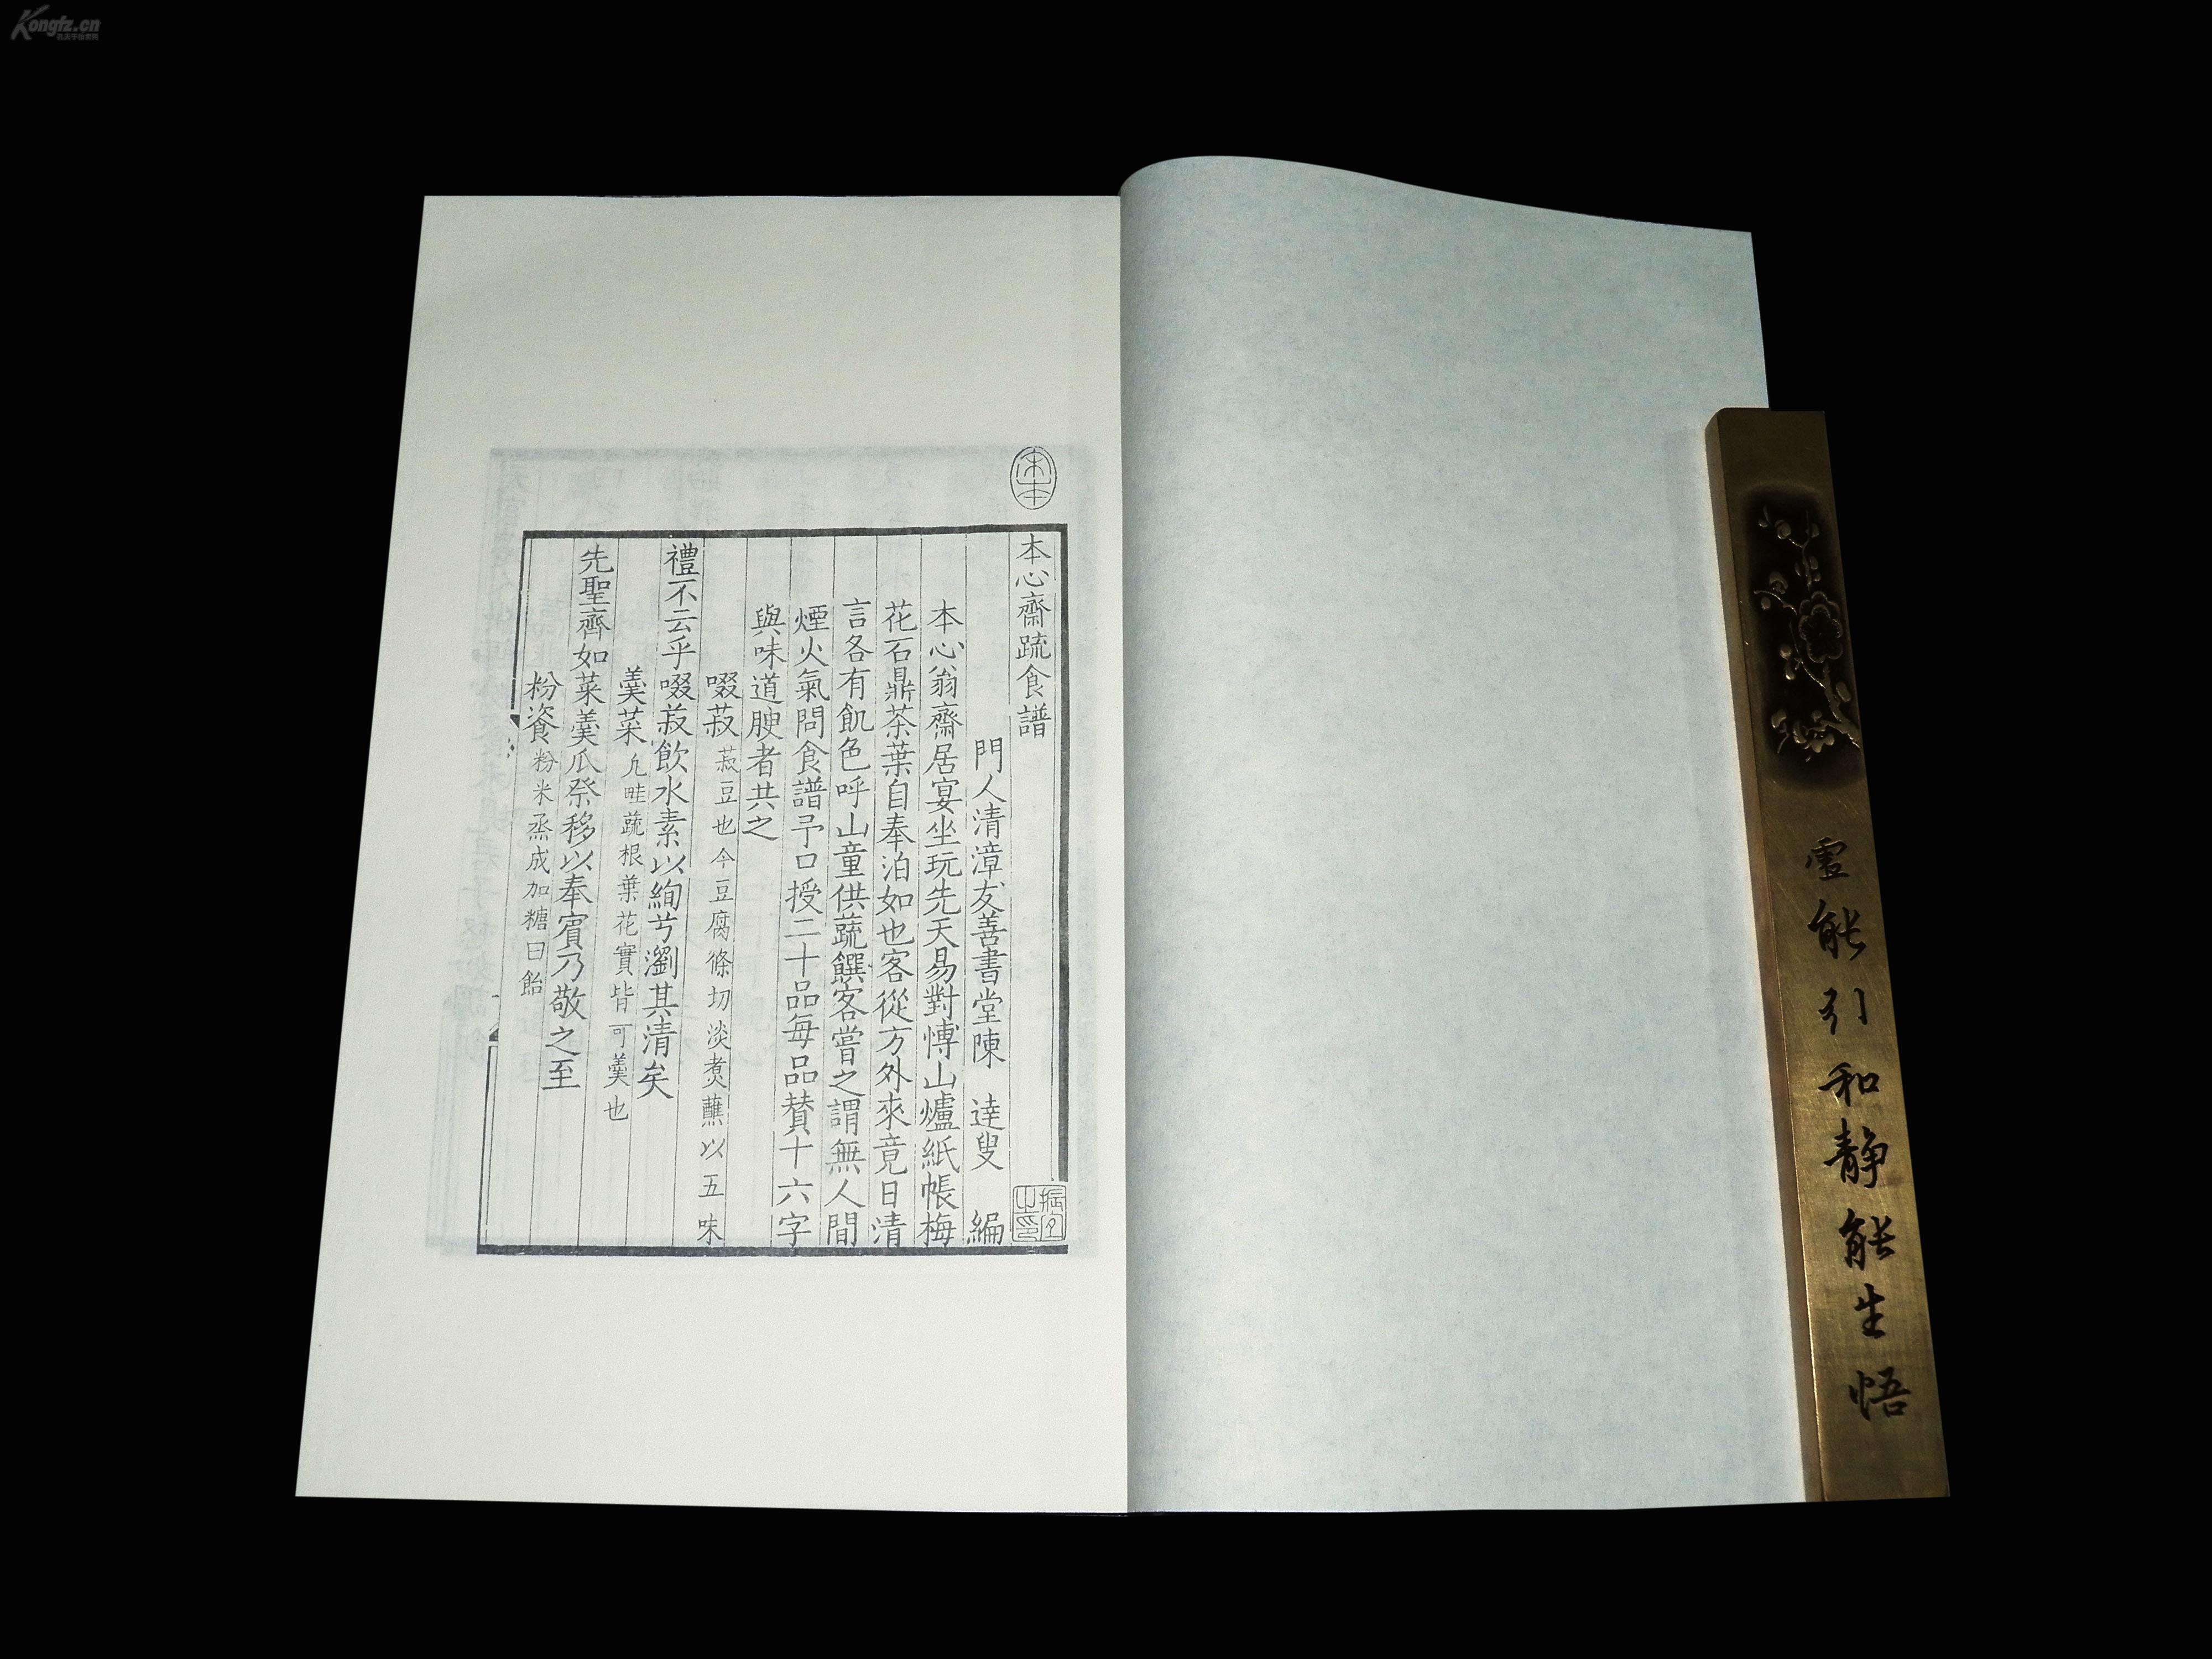 Kongfz.cn
宋本
本心齋蔬食譜
門人清漳友善書堂陳 達叟 編
本心翁齋居宴坐玩先天易對慱山爐紙帳梅
花石鼎茶葉自奉泊如也客從方外來竟日清
言各有飢色呼山童供蔬饌客嘗之謂無人間
煙火氣問食譜予口授二十品每品賛十六字
與味道腴者共之
啜菽 菽豆也今豆腐條切淡煑蘸以五味
禮不云乎啜菽飲水素以絢兮瀏其清矣
羹菜 凡畦蔬根葉花實皆可羹也
先聖齊如菜羹瓜祭移以奉賓乃敬之至
粉餈 粉米烝成加糖曰飴
虛能引和静能生悟